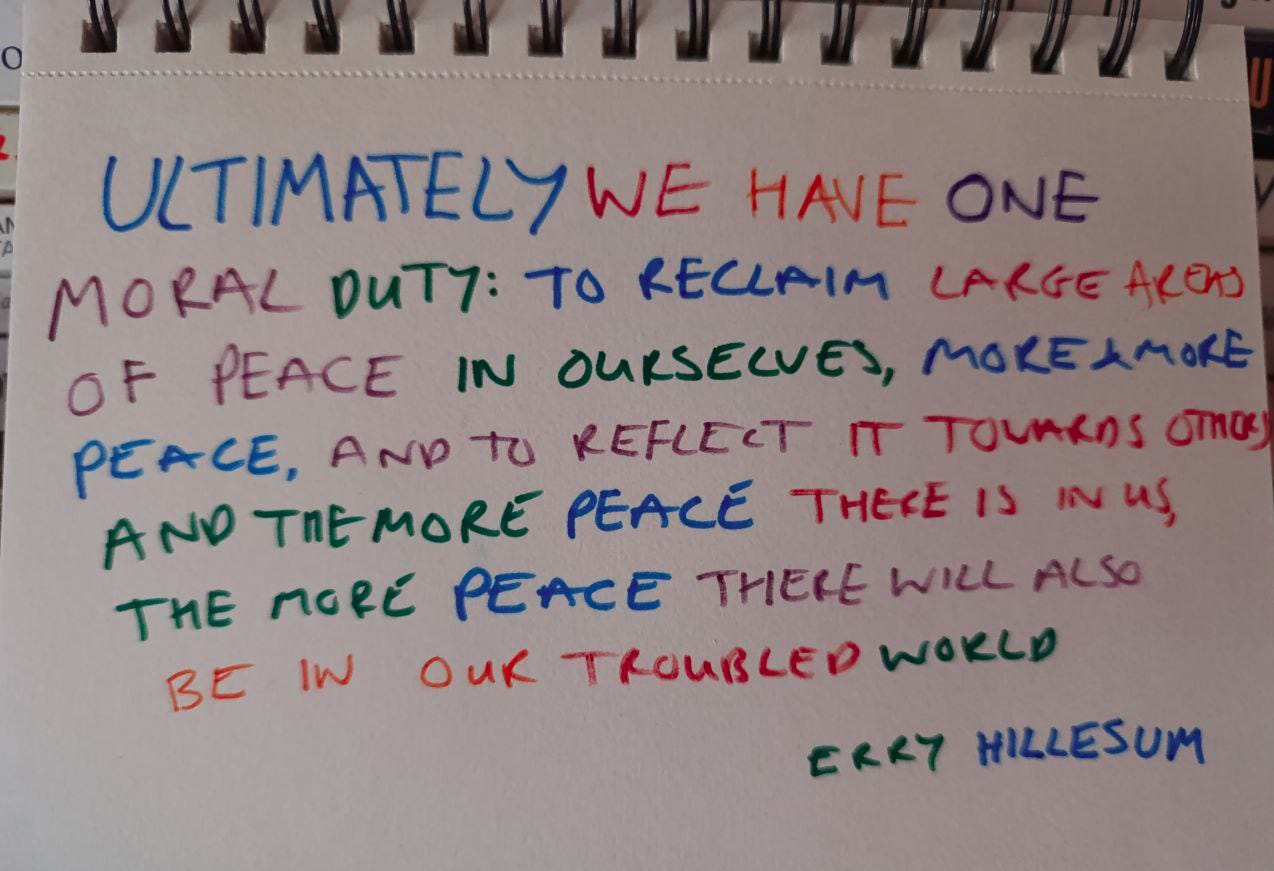 ULTIMATELY WE HAVE ONE
MORAL DUTY: TO RECLAIM LARGE AREAS
OF PEACE IN OURSELVES, MORE & MORE
PEACE, AND TO REFLECT IT TOWARDS OTHERS
AND THE MORE PEACE THERE IS IN US,
THE MORE PEACE THERE WILL ALSO
BE IN OUR TROUBLED WORLD
ERRY HILLESUM